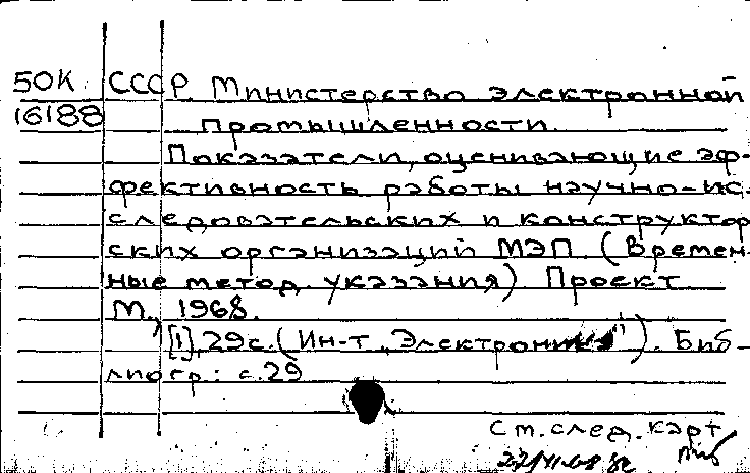 50К СССР Министерство электронной
16188 промышленности.
Показатели, оценивающие эф-
фективность работы научно-ис-
следовательских и конструктор
ских организаций МЭП (Времен-
ные метод. указания) Проект
М., 1968.
[1], 29с. (Ин-т „Электроника"). Биб-
лиогр.: с.29
См. след. карт